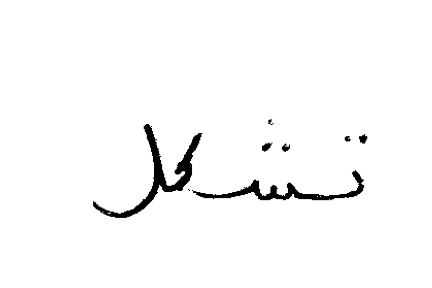 تشكل